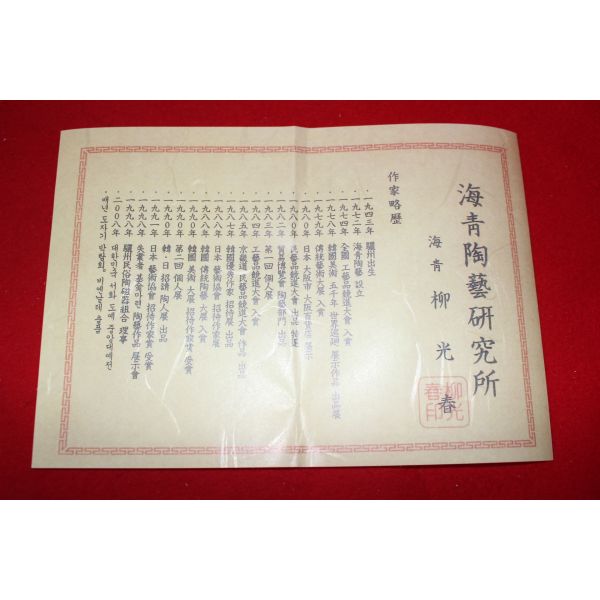 海青陶藝硏究所
海青 柳光春
柳光春印
作家略歷
· 一九四三年 驪州出生
· 一九七二年 海青陶藝 設立
· 一九七四年 全國 工藝品競進大會 入賞
· 一九七八年 韓國美術 五千年 世界巡廻 展示作品 出品展
· 一九七九年 傳統藝術大展 入賞
· 一九八〇年 日本 大阪市 大阪百貨店 展示
· 一九八〇年 民藝品競進大會 出品 特選
· 一九八二年 貿易博覽會 陶藝部門 出品
· 一九八三年 第一回 個人展
· 一九八四年 工藝品競進大會 入賞
· 一九八五年 京畿道 民藝品競進大會 作品 出品
· 一九八七年 韓國優秀作家 招待展 出品
· 一九八八年 日本 藝術協會 招待作家展
· 一九八八年 韓國 傳統陶藝 大展 入賞
· 一九九〇年 韓國 美術 大展 招待作家賞 受賞
· 一九九〇年 第二回 個人展
· 一九九〇年 韓·日 招請 陶人展
· 一九九一年 日本 藝術協會 招待作家賞 受賞
· 一九九八年 失業者 基金마련 陶藝作品 展示會
· 一九九八年 驪州民俗陶磁器組合 理事
· 二〇〇八年 대한민국 서화 도예 중앙대예전
· 백년 도자기 박람회,